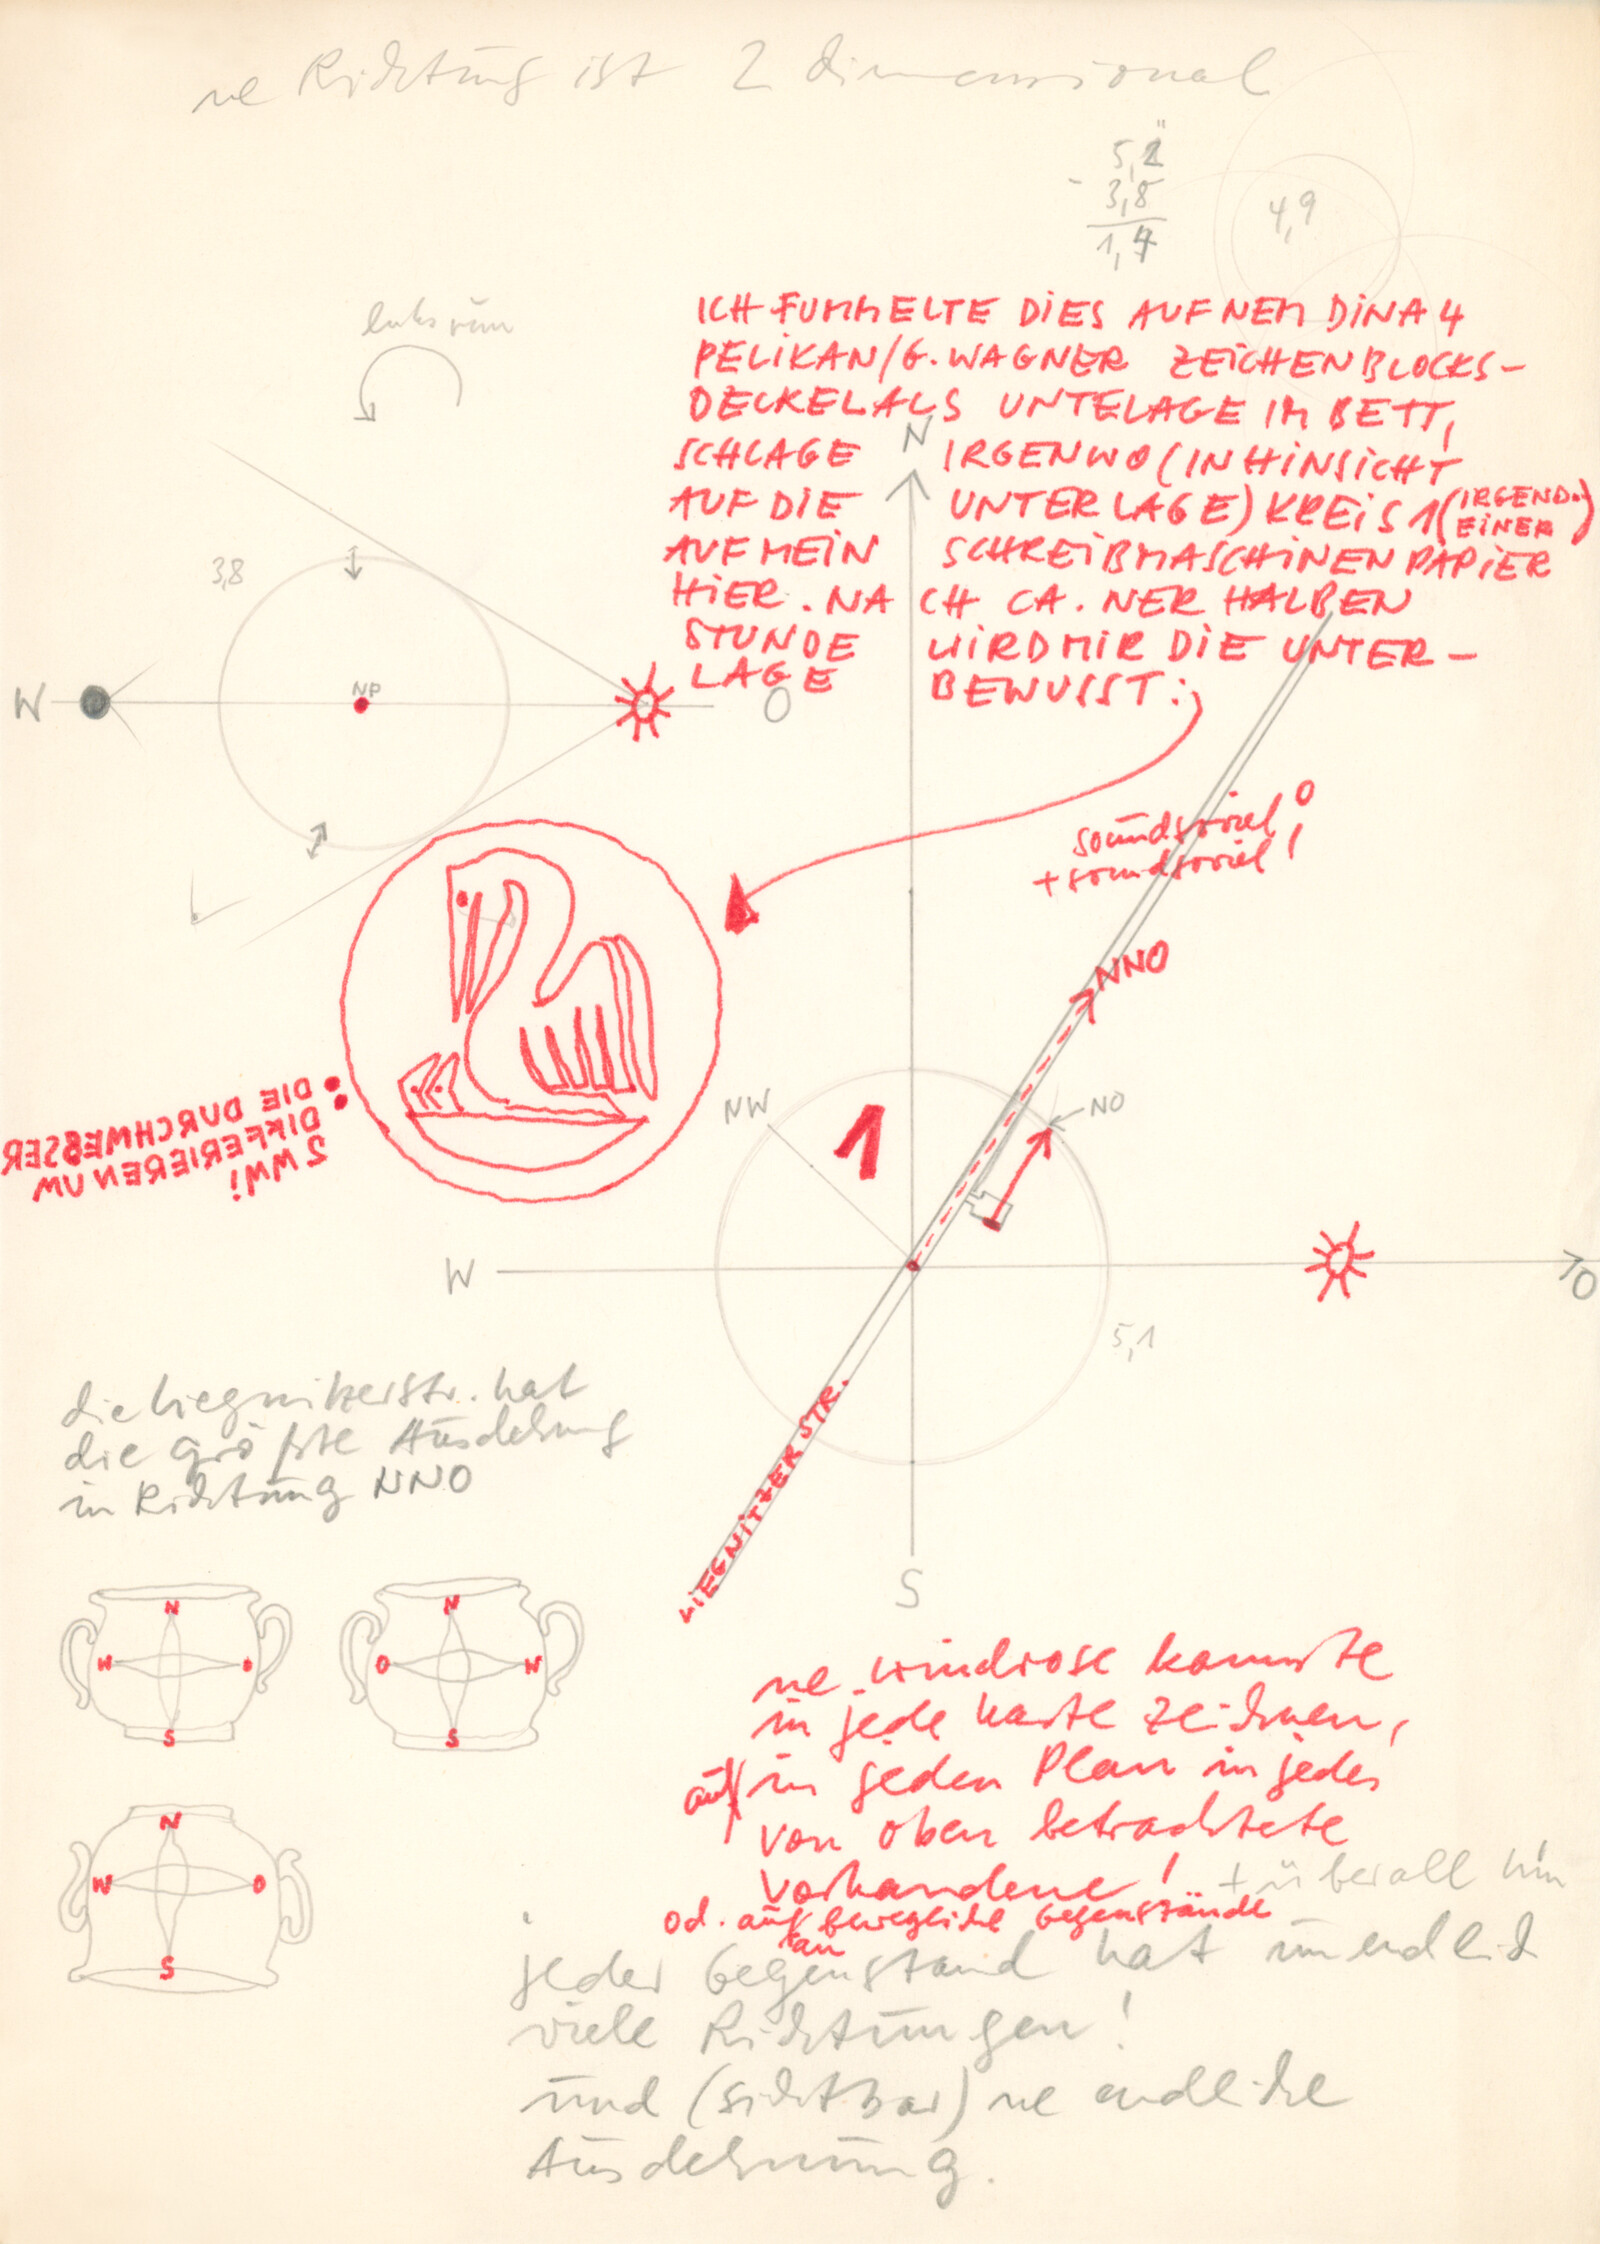 ne Richtung ist 2 dimensional
5,2
- 3,8
1,4
4,9
linksrum
ICH FUMMELTE DIES AUF NEM DINA4
PELIKAN/G.WAGNER ZEICHENBLOCKS-
DECKEL ALS UNTELAGE IM BETT,
SCHLAGE IRGENWO (IN HINSICHT
AUF DIE UNTERLAGE) KREIS 1 (IRGEND-
EINER)
AUF MEIN SCHREIBMASCHINENPAPIER
HIER. NACH CA. NER HALBEN
STUNDE WIRD MIR DIE UNTER-
LAGE BEWUSST:
N
3,8
W
NP
O
soundsoviel
+ soundsoviel!
NNO
DIE DURCHMESSER
DIFFERIEREN UM
2 MM!
NW
1
NO
W
O
5,1
LIEGNITZER STR.
S
die Liegnitzerstr. hat
die größte Ausdehnung
in Richtung NNO
N
W
S
N
O
W
S
N
W
O
S
ne windrose kannste
in jede karte zeichnen,
auf/in jeden Plan in jedes
von oben betrachtete
vorhandene! + überall hin
od. auf bewegliche Gegenstände
an
jeder Gegenstand hat unendlich
viele Richtungen!
und (sichtbar) ne endliche
Ausdehnung.